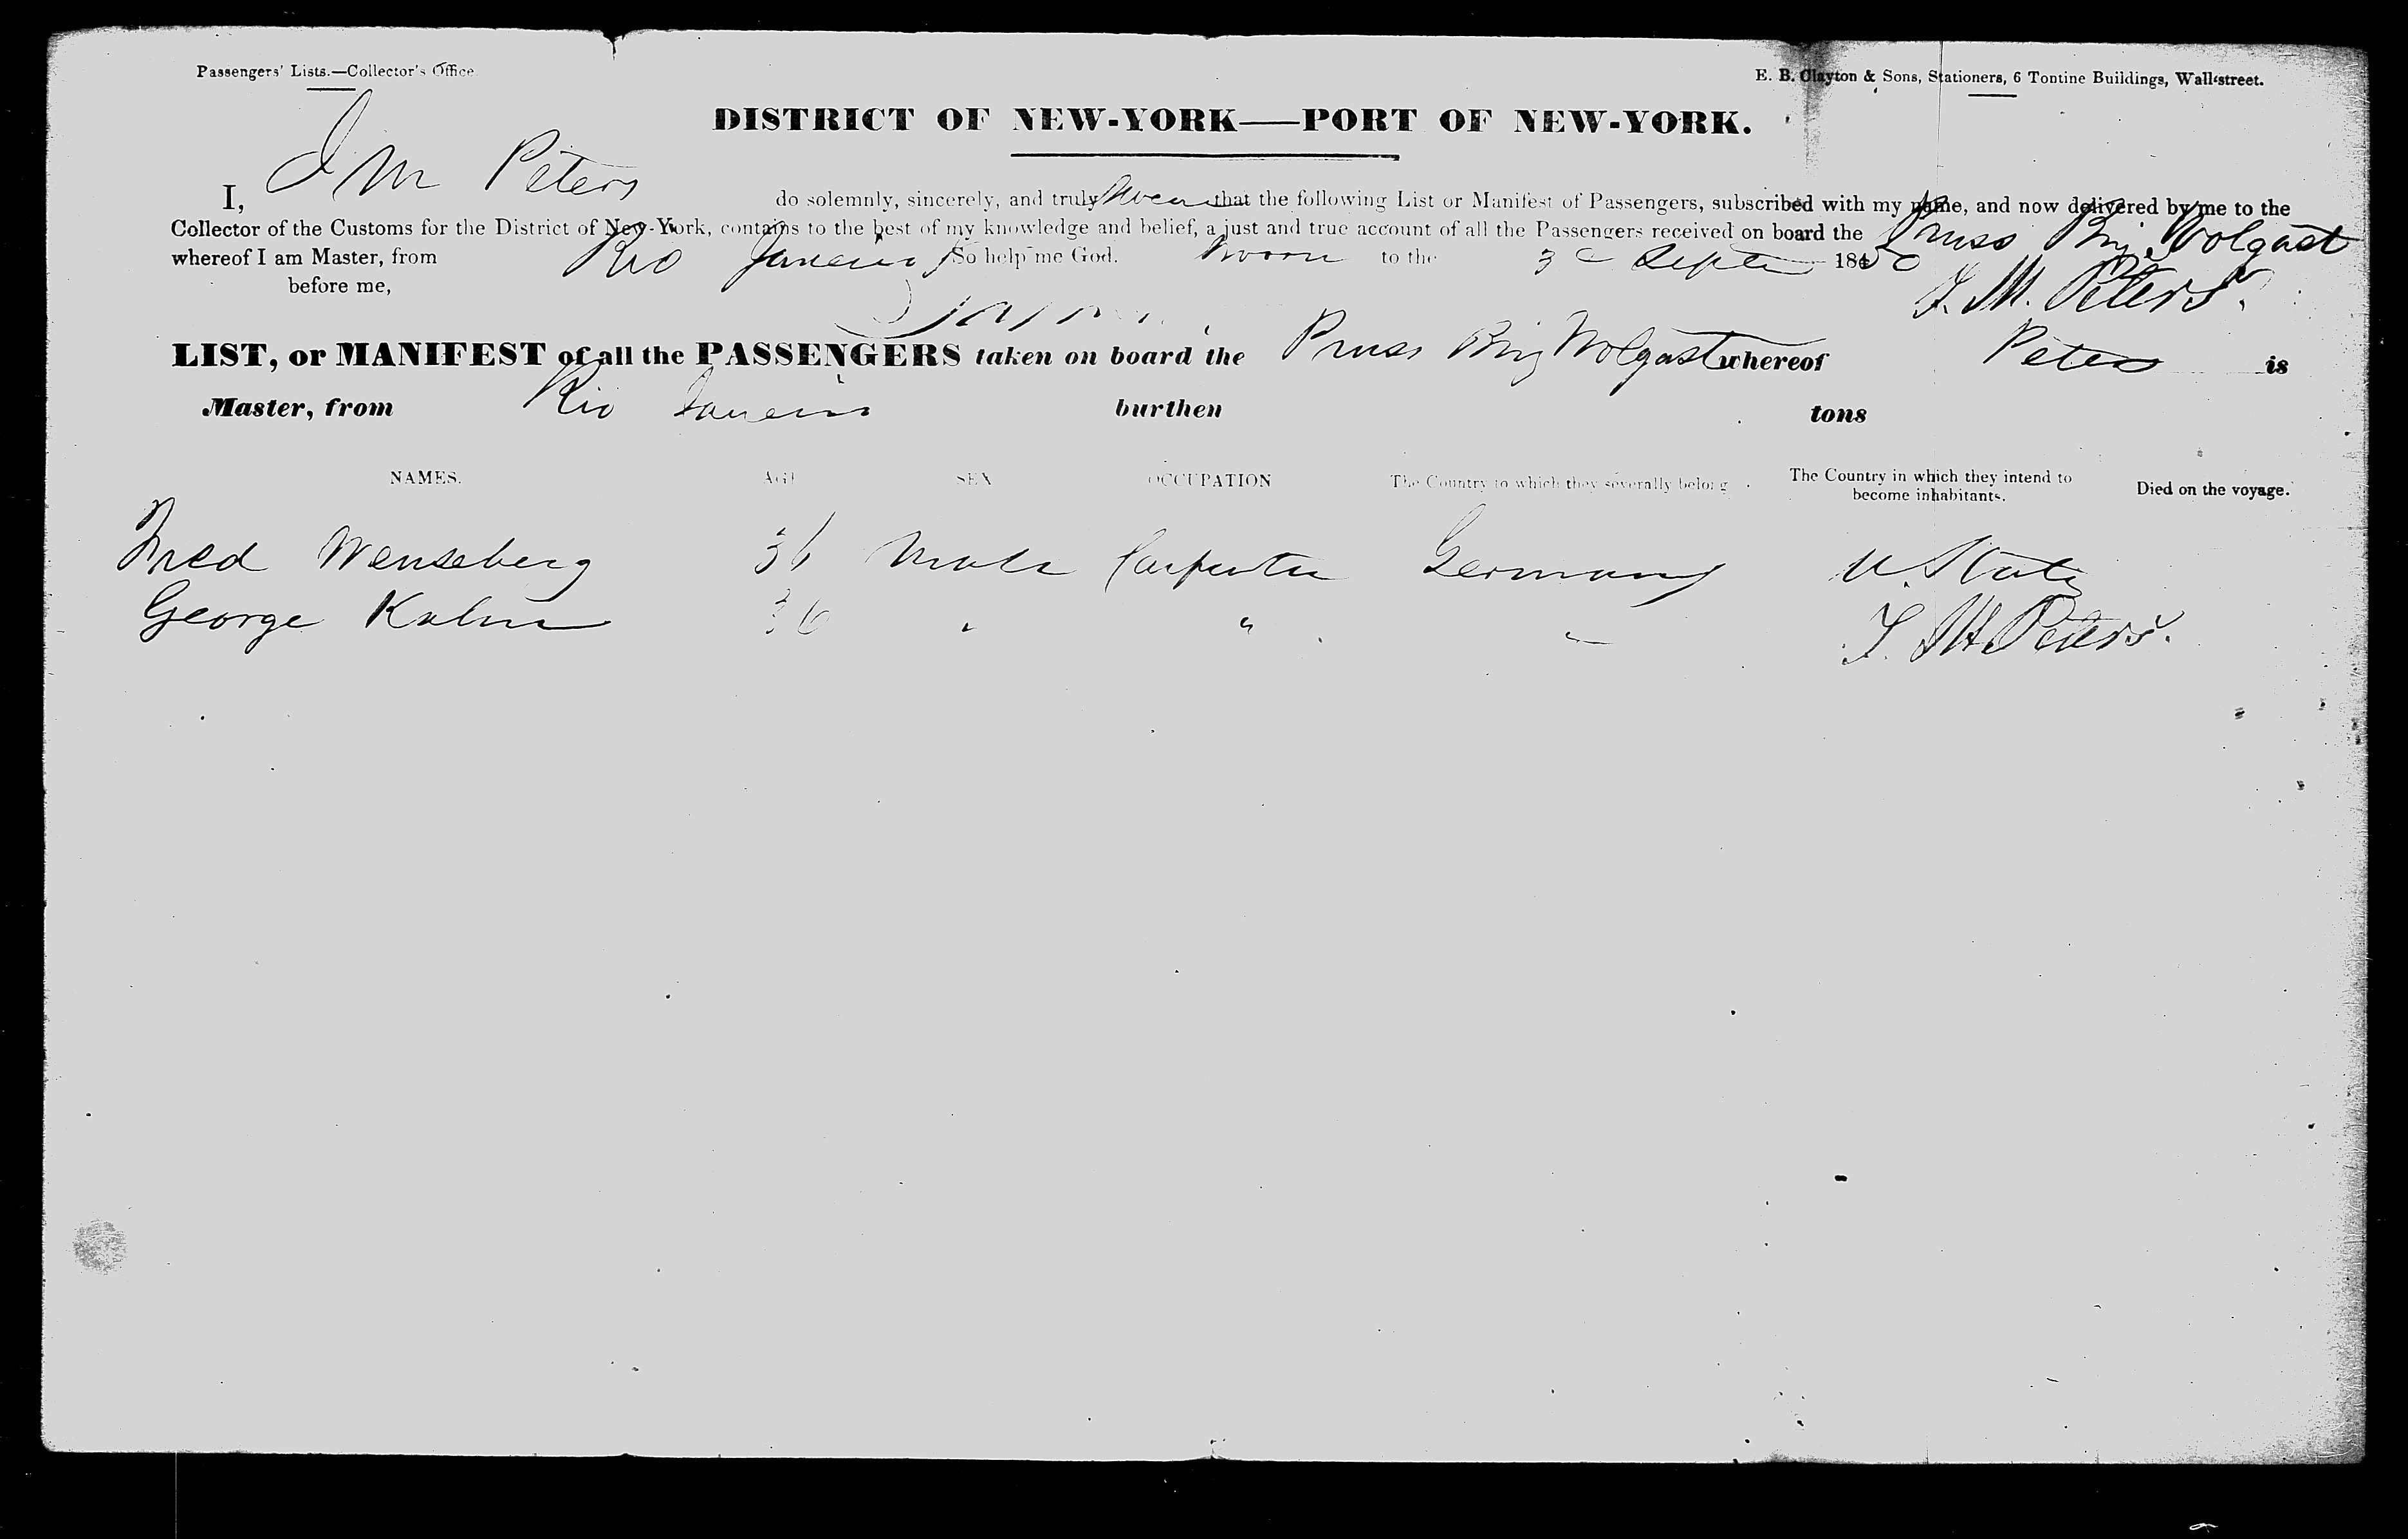 Passengers' Lists.—Collector's Office.
E. B. Clayton & Sons, Stationers, 6 Tontine Buildings, Wall-street.
DISTRICT OF NEW-YORK—PORT OF NEW-YORK.
I, J M Peters do solemnly, sincerely, and truly swear that the following List or Manifest of Passengers, subscribed with my name, and now delivered by me to the
Collector of the Customs for the District of New-York, contains to the best of my knowledge and belief, a just and true account of all the Passengers received on board the Pruss Brig Wolgast
whereof I am Master, from Rio Janeiro So help me God. Sworn to the 3 Septr 1850
before me, J. M. Peters.
LIST, or MANIFEST of all the PASSENGERS taken on board the Pruss Brig Wolgast whereof Peters is
Master, from Rio Janeiro burthen tons
NAMES. AGE SEX OCCUPATION The Country to which they severally belong. The Country in which they intend to become inhabitants. Died on the voyage.
Fred Wenseberg 36 Male Carpenter Germany U. States
George Kalm 36 " " "
J. M. Peters.